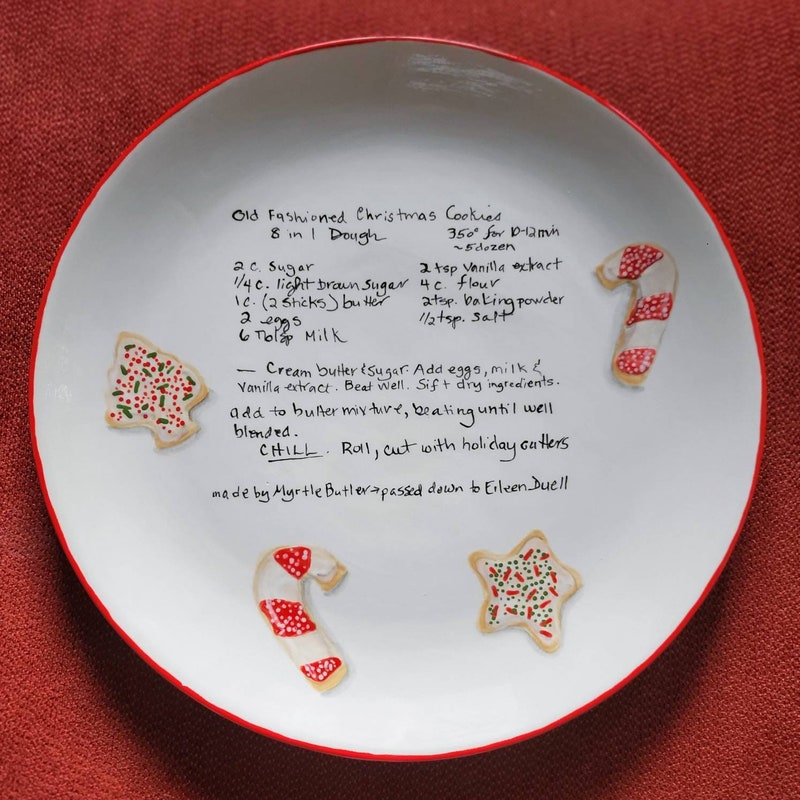 Old Fashioned Christmas Cookies
8 in 1 Dough
350° for 10-12 min
~5 dozen
2 c. sugar
1/4 c. light brown sugar
1 c. (2 sticks) butter
2 eggs
6 Tblsp Milk
2 tsp Vanilla extract
4 c. flour
2 tsp. baking powder
1/2 tsp. salt
— Cream butter & sugar. Add eggs, milk &
vanilla extract. Beat well. Sift dry ingredients.
add to butter mixture, beating until well
blended.
CHILL. Roll, cut with holiday cutters
made by Myrtle Butler → passed down to Eileen Duell